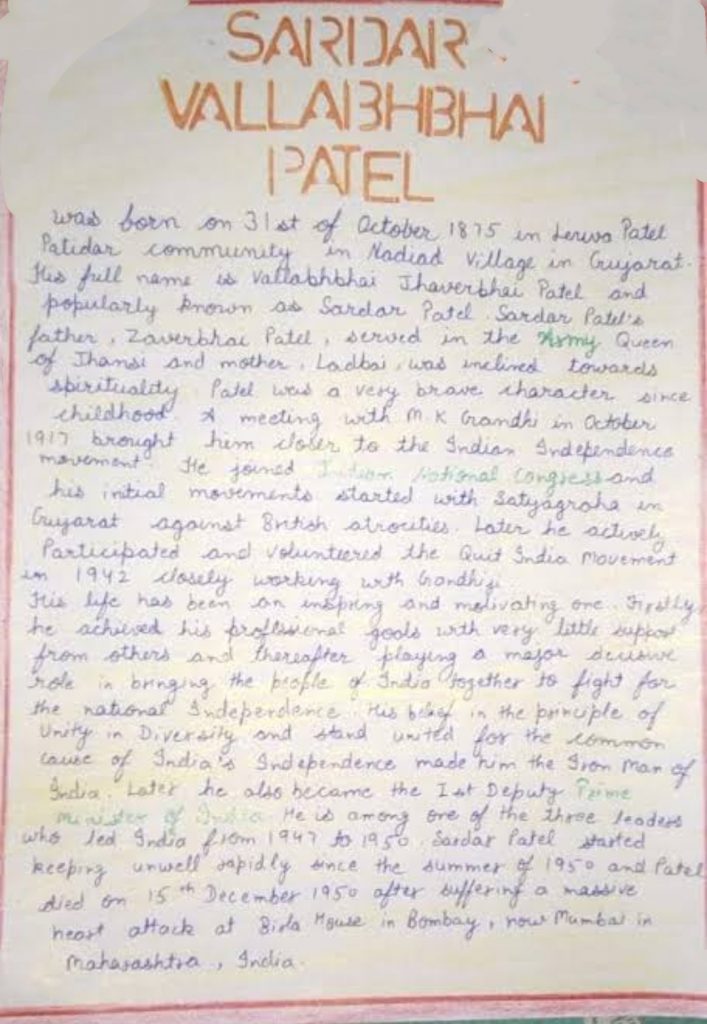 SARDAR
VALLABHBHAI
PATEL
was born on 31st of October 1875 in Lerwa Patel
Patidar community in Nadiad Village in Gujarat.
His full name is Vallabhbhai Jhaverbhai Patel and
popularly known as Sardar Patel. Sardar Patel's
father, Zaverbhai Patel, served in the Army Queen
of Jhansi and mother, Ladbai, was inclined towards
spirituality. Patel was a very brave character since
childhood. A meeting with M.K Gandhi in October
1917 brought him closer to the Indian Independence
movement. He joined Indian National Congress and
his initial movements started with Satyagraha in
Gujarat against British atrocities. Later he actively
Participated and volunteered the Quit India Movement
in 1942 closely working with Gandhiji
His life has been an inspiring and motivating one. Firstly,
he achieved his professional goals with very little support
from others and thereafter playing a major decisive
role in bringing the people of India together to fight for
the national Independence. His belief in the principle of
Unity in Diversity and stand united for the common
cause of India's Independence made him the Iron Man of
India. Later he also became the Ist Deputy Prime
Minister of India. He is among one of the three leaders
who led India from 1947 to 1950. Sardar Patel started
keeping unwell rapidly since the summer of 1950 and Patel
died on 15th December 1950 after suffering a massive
heart attack at Birla House in Bombay, now Mumbai in
Maharashtra, India.